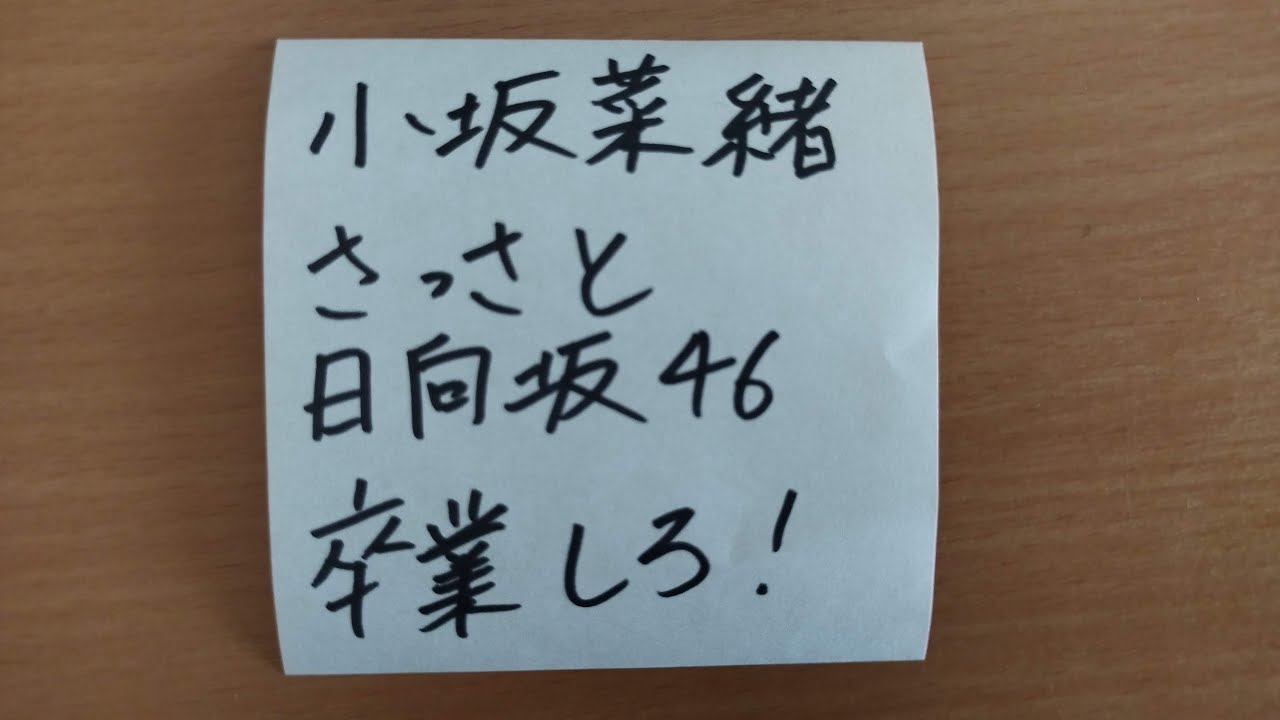 小坂菜緒
さっさと
日向坂46
卒業しろ!